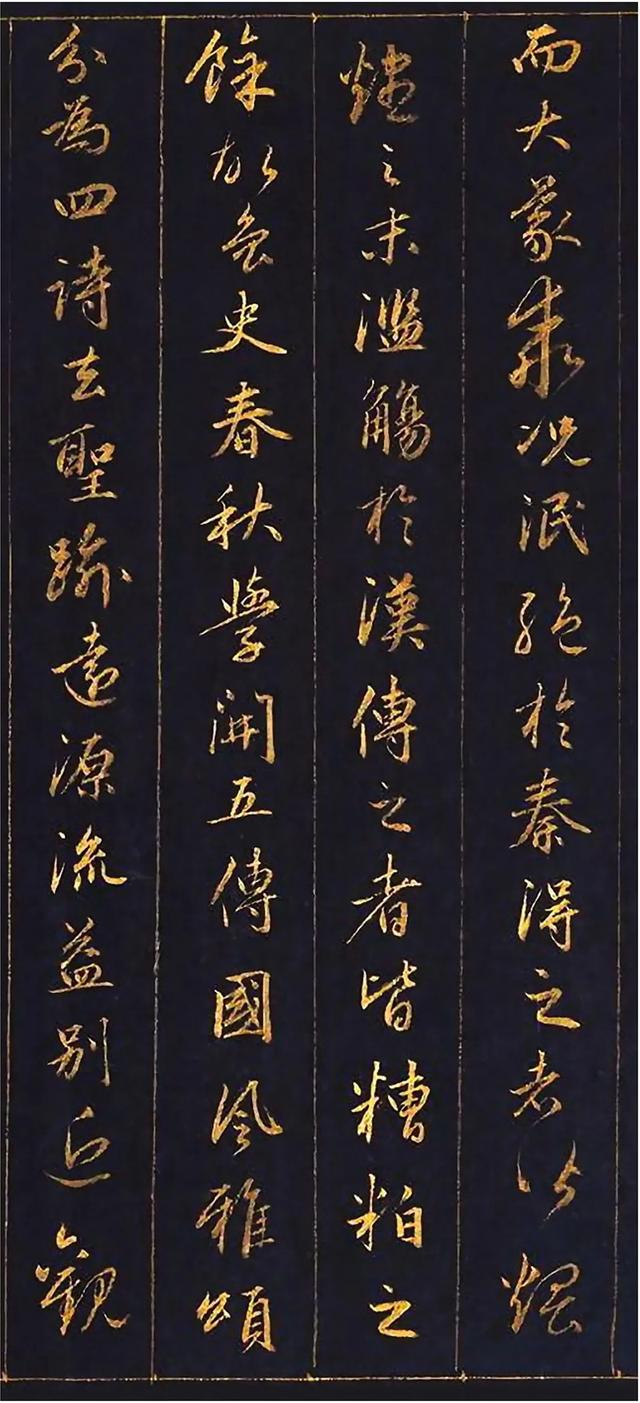 而大義乖況泯絕於秦得之者皆煨
燼之末濫觴於漢傳之者皆糟粕之
餘故魯史春秋學開五傳國風雅頌
分為四詩去聖踰遠源流益別近觀